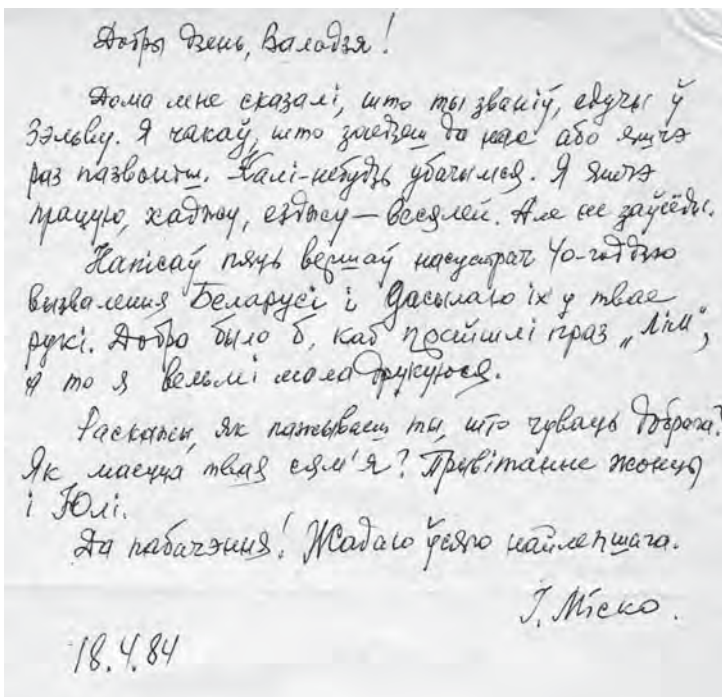 Добры дзень, Валодзя!
Дома мне сказалі, што ты званіў, едучы ў
Зэльву. Я чакаў, што заедзеш да нас або яшчэ
раз пазвоніш. Калі-небудзь убачымся. Я яшчэ
працую, хаджу, езджу — весялей. Але не заўсёды.
Напісаў пяць вершаў насустрач 40-годдзю
вызвалення Беларусі і дасылаю іх у твае
рукі. Добра было б, каб прайшлі праз „ЛіМ",
а то я вельмі мала друкуюся.
Раскажы, як пажываеш ты, што чуваць добрага?
Як маецца твая сям'я? Прывітанне жонцы
і Юлі.
Да пабачэння! Жадаю ўсяго найлепшага.
І. Міско.
18.4.84